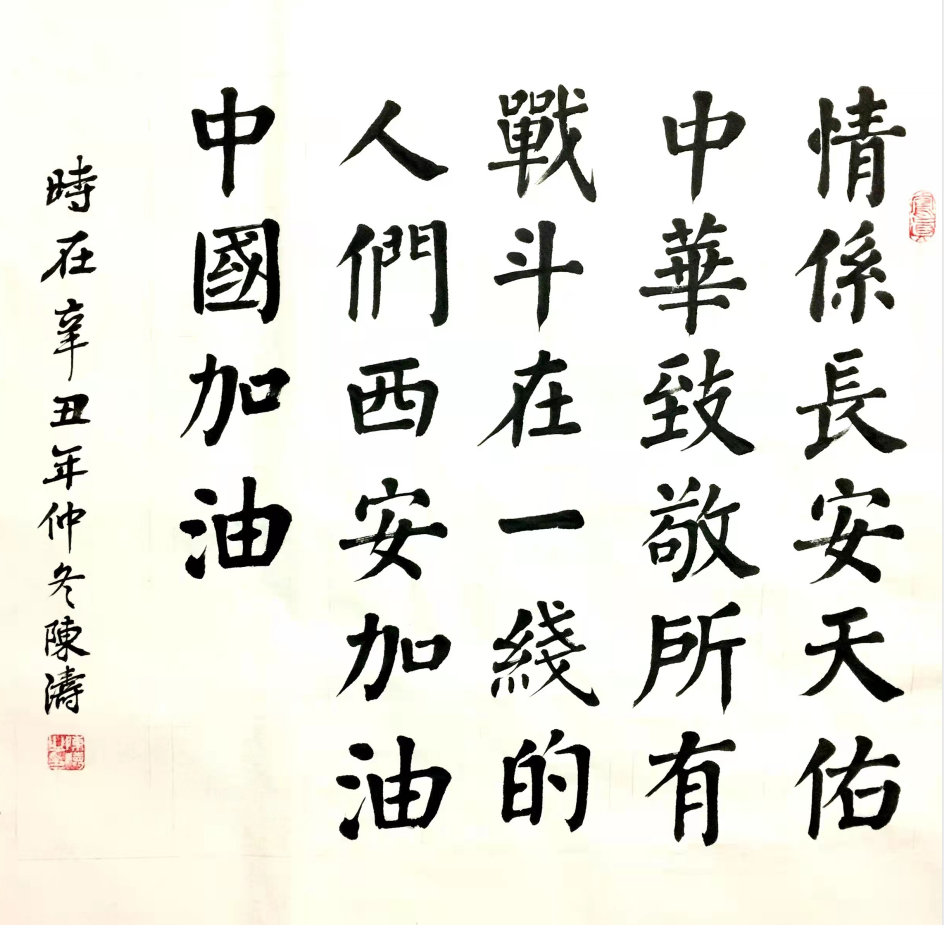 情係長安天佑
中華致敬所有
戰斗在一綫的
人們西安加油
中國加油
時在辛丑年仲冬陳濤